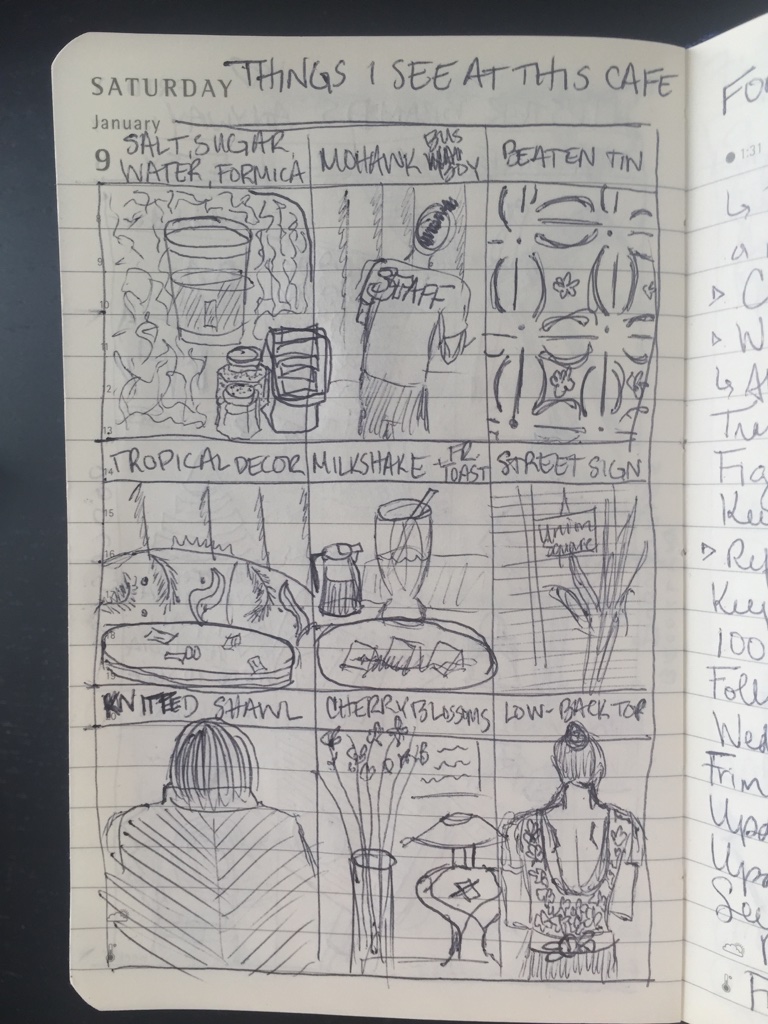 THINGS I SEE AT THIS CAFE
SATURDAY
January
9
SALT, SUGAR,
WATER, FORMICA
MOHAWK BUS
BOY
BEATEN TIN
STAFF
9
10
11
12
13
14
TROPICAL DECOR
MILKSHAKE + FR.
TOAST
STREET SIGN
15
16
Union
Square
KNITTED SHAWL
CHERRY BLOSSOMS
LOW-BACK TOP
1:31
100